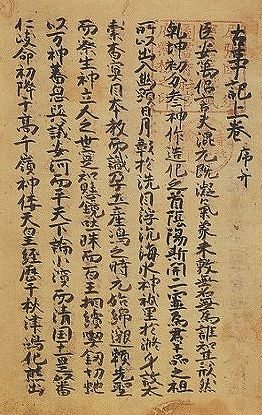 古事記上卷 序并
臣安萬侶言夫混元既凝氣象未敦無名無為誰知其形然
乾坤初分参神作造化之首陰陽斯開二霊為群品之祖
所以出入幽顕日月彰於洗目浮沈海水神祇呈於滌身故太
素杳冥因本教而識孕土産嶋之時元始綿邈頼先聖
而察生神立人之世寔知懸鏡吐珠而百王相續喫釼切虵
以万神蕃息與議安河而平天下論小濱而清國土是以番
仁岐命初降于高千嶺神倭天皇経歴于秋津嶋化熊出